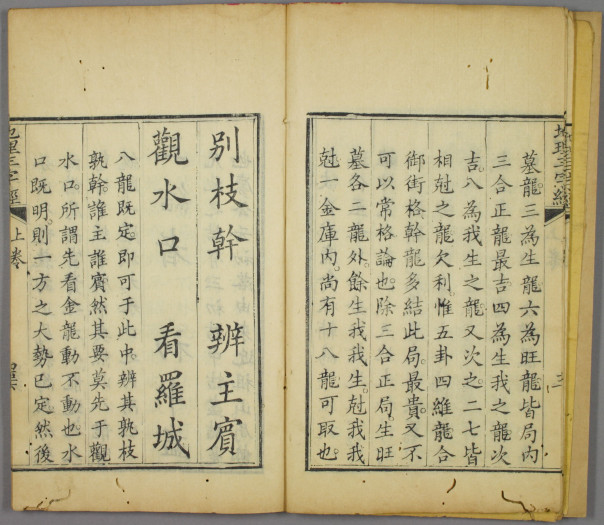 墓龍三為生龍六為旺龍皆局內
三合正龍最吉四為生我之龍次
吉八為我生之龍又次之二七皆
相尅之龍欠利惟五卦四維龍合
御街格幹龍多結此局最貴又不
可以常格論也除三合正局生旺
墓各二龍外餘生我我生尅我我
尅一金庫內尚有十八龍可取也
地理三字經
別枝幹　辨主賓
觀水口　看羅城
八龍既定即可于此中辨其孰枝
孰幹誰主誰賓然其要莫先于觀
水口所謂先看金龍動不動也水
口既明則一方之大勢已定然後
地理三字經
上卷